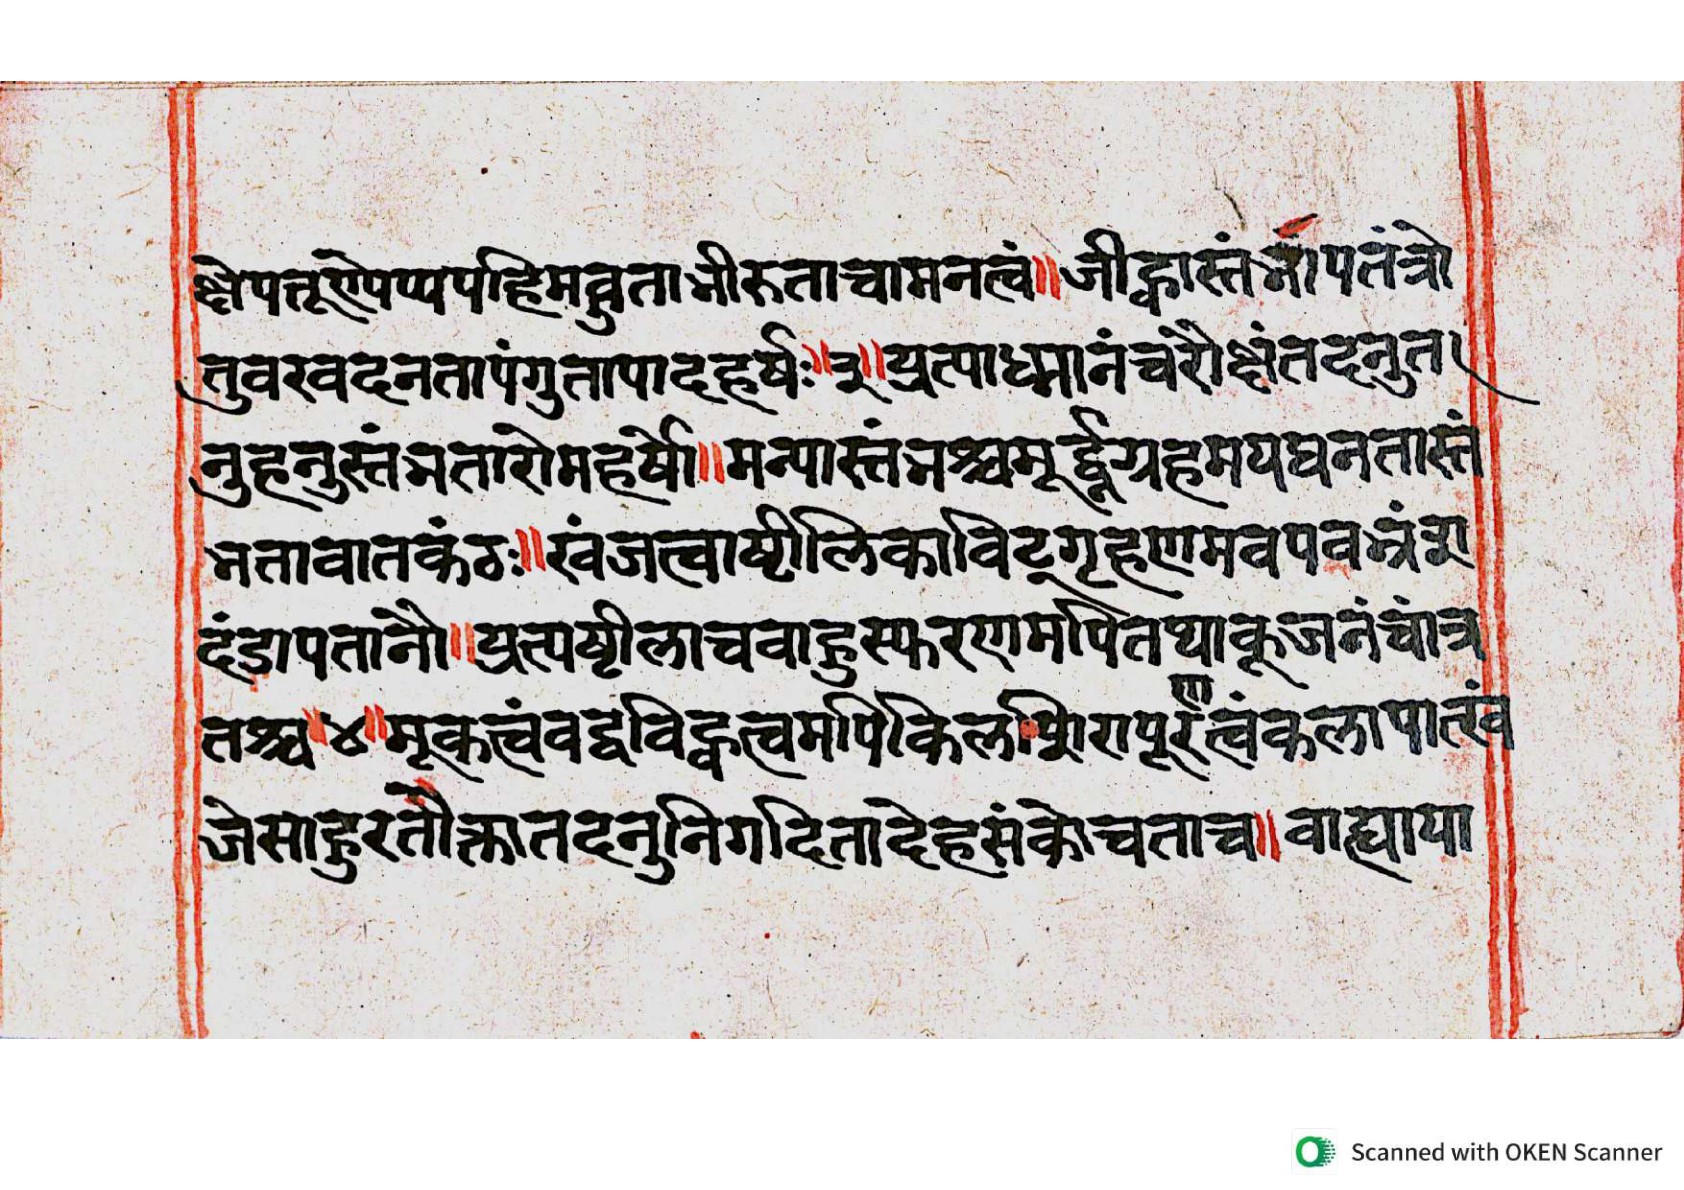 क्षेपत्तूरोपप्यपहिमवुताभीरुताचामनत्वं॥जीह्वास्तंभोपतंत्रो
तुवरवदनतापंगुतापादहर्षः॥३॥प्रत्पाध्मानंचरौक्ष्यंतदनुत
नुहनुस्तंभतारोमहर्षो॥मन्पास्तंभश्चमूर्द्धग्रहमयघनतास्तं
भतावातकंठः॥खंजत्वाष्टीलिकाविट्गृहणमवपवभ्रंश
दंडापतानौ॥प्रत्पष्टीलाचवाहुस्फरणमपितथाकूजनंचांत्र
तश्च॥४॥मूकत्वंवद्धविट्कत्वमपिकिलशिरापूरणत्वंकलापात्खं
जेसाहुरतौक्तातदनुनिगदितादेहसंकोचताच॥वाह्याया
Scanned with OKEN Scanner